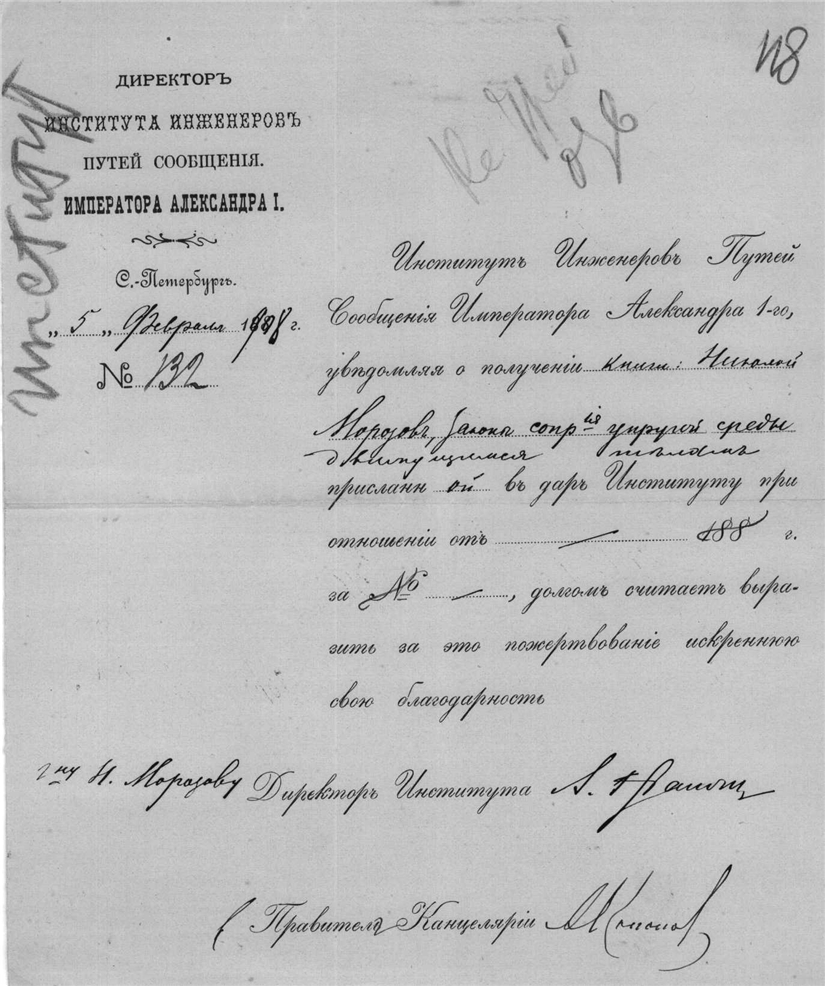 118
институт
ДИРЕКТОРЪ
ИНСТИТУТА ИНЖЕНЕРОВЪ
ПУТЕЙ СООБЩЕНІЯ.
ИМПЕРАТОРА АЛЕКСАНДРА I.
С.-Петербургъ.
„ 5 „ Февраля 1908 г.
№ 132
Институтъ Инженеровъ Путей
Сообщенія Императора Александра 1-го,
увѣдомляя о полученіи книги: Николай
Морозовъ, Законы сопр-ія упругой среды
движущимся тѣламъ
присланн ой въ даръ Институту при
отношеніи отъ — 188 г.
за № —, долгомъ считаетъ выра-
зить за это пожертвованіе искреннюю
свою благодарность
г ну Н. Морозову
Директоръ Института
Правитель Канцеляріи